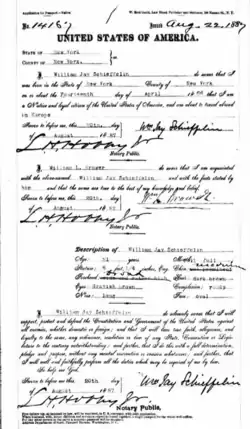 No. 14169
Issued Aug. 22. 1887
UNITED STATES OF AMERICA.
STATE OF New York
COUNTY OF New York.
I William Jay Schieffelin do swear that I was
born in the State of New York County of New York
on or about the Fourteenth day of April 1866 that I am
a Native and loyal citizen of the United States of America, and am about to travel abroad
in Europe
Sworn to before me, this 20th. day
of August 1887 Wm Jay Schieffelin
Notary Public.
I William L. Brower do swear that I am acquainted
with the above-named William Jay Schieffelin and with the facts stated by
him and that the same are true to the best of my knowledge and belief.
Sworn to before me, this 20th. day
of August 1887
Notary Public.
Description of William Jay Schieffelin
Age: 21 years Mouth: full
Stature: feet inches, Eng. Chin:
Forehead: Hair: dark brown
Eyes: Complexion:
Nose: long Face: oval
I William Jay Schieffelin do solemnly swear that I will
support, protect and defend the Constitution and Government of the United States against
all enemies, whether domestic or foreign; and that I will bear true faith, allegiance, and
loyalty to the same, any ordinance, resolution or law of any State, Convention or Legis-
lature to the contrary notwithstanding; and further, that I do this with a full determination,
pledge and purpose, without any mental reservation or evasion whatsoever; and further, that
I will well and faithfully perform all the duties which may be required of me by law.
So help me God.
Sworn to before me, this 20th day
of August 1887 Wm Jay Schieffelin
Notary Public.